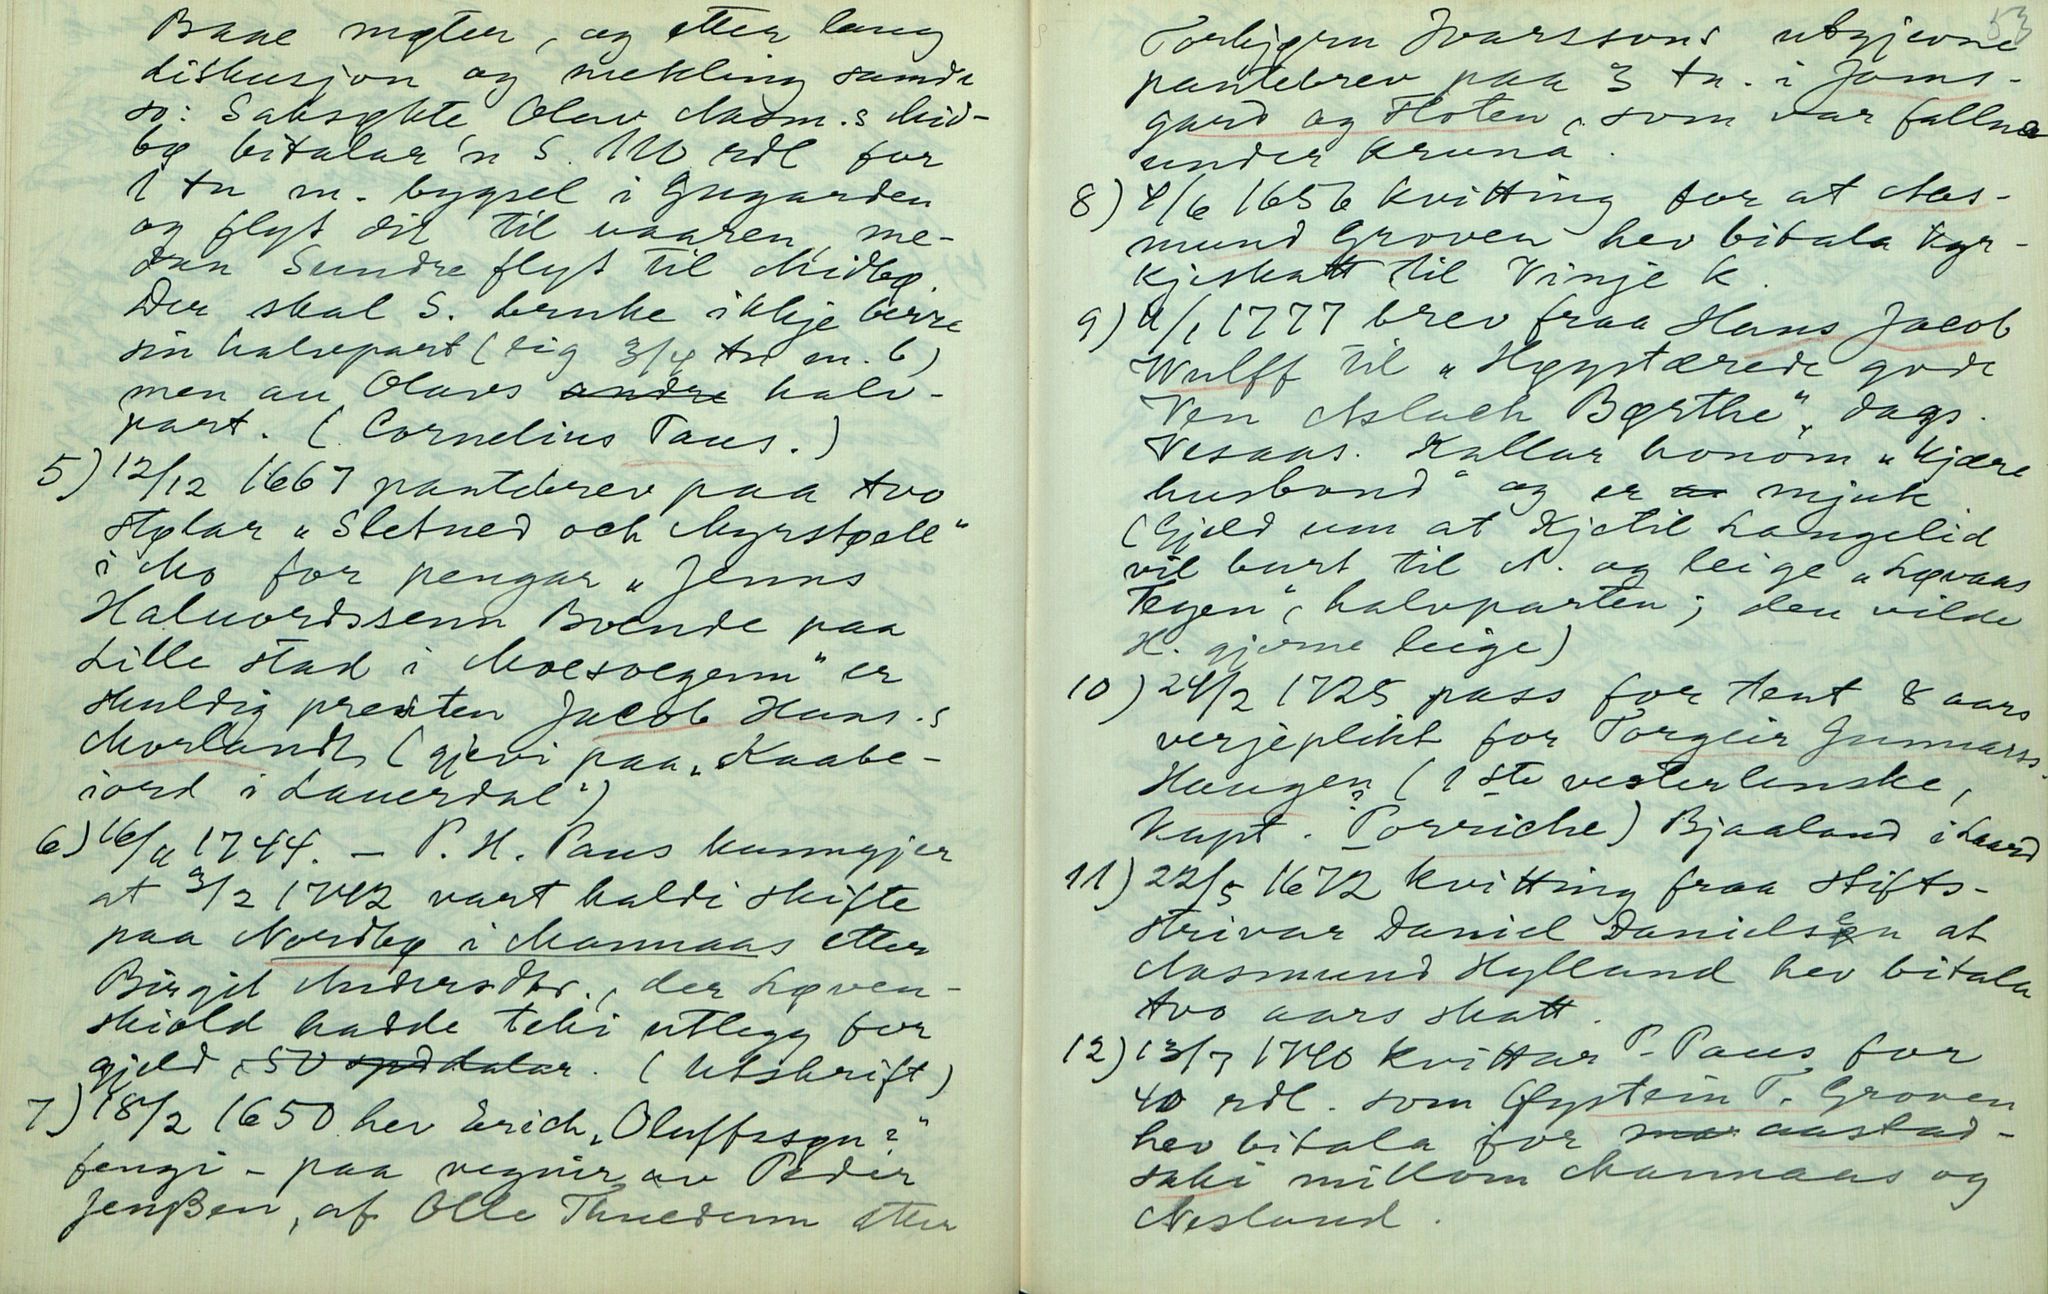 Baae møter, og etter lang
diskusjon og mekling samdst
so: Saksøkte Olav Aasm.s Mid-
bø bitalar 'n S. 110 rdl for
1 tn m. bygsel i Gugarden
og flyt dit til vaaren, me-
dan Sundre flyt til Midbø.
Der skal S. bruke ikkje berre
sin halvpart (eig 3/4 tn m. b)
men au Olavs andre halv-
part. (Cornelius Paus.)
5) 12/12 1667 pantebrev paa tvo
stølar "Sletned och Myrstøell"
i Mo for pengar "Jenns
Haluordssenn Boende paa
Lille stad i Moesoegenn" er
skuldig presten Jacob Hans.s
Morland, (gjevi paa "Kaabe-
iord i Lauerdal")
6) 16/11 1744. – P. H. Paus kunngjer
at 3/2 1742 vart haldi skifte
paa Nordbø i Mannaas etter
Birgit Andersdtr., der Løven-
skiold hadde teki utlegg for
gjeld, 50 spd dalar. (Utskrift)
7) 18/2 1650 hev Erich "Oluffssøn?"
fengi – paa vegnir av Peder
Jenßen, af Olle Thuedenn etter
53
Torbjørn Ivarssons utgjevne
pantebrev paa 3 tn. i Jams-
gard og Floten, som var fallne
under kruna.
8) 4/6 1656 kvitting for at Aas-
mund Groven hev bitala kyr-
kjeskatt til Vinje k.
9) 11/1 1777 brev fraa Hans Jacob
Wulff til "Høystærede gode
Ven Aslach Børthe", dags.
Vesaas. Kallar honom "kjære
husbond" og er mjuk
(Gjeld um at Kjetil Langelid
vil burt til N. og leige "Løvaas
Tegen", halvparten; den vilde
H. gjerne leige)
10) 24/2 1725 pass for tent 8 aars
verjeplikt for Torgeir Gunnarss.
Haugen (1ste vesterlenske,
Kapt. Porriche) Bjaaland i Laard
11) 22/5 1672 kvitting fraa stifts-
skrivar Daniel Danielsen at
Aasmund Hylland hev bitala
tvo aars skatt.
12) 13/7 1740 kvittar P. Paus for
40 rdl. som Øystein T. Groven
hev bitala for aastad-
saki millom Mannaas og
Nesland.